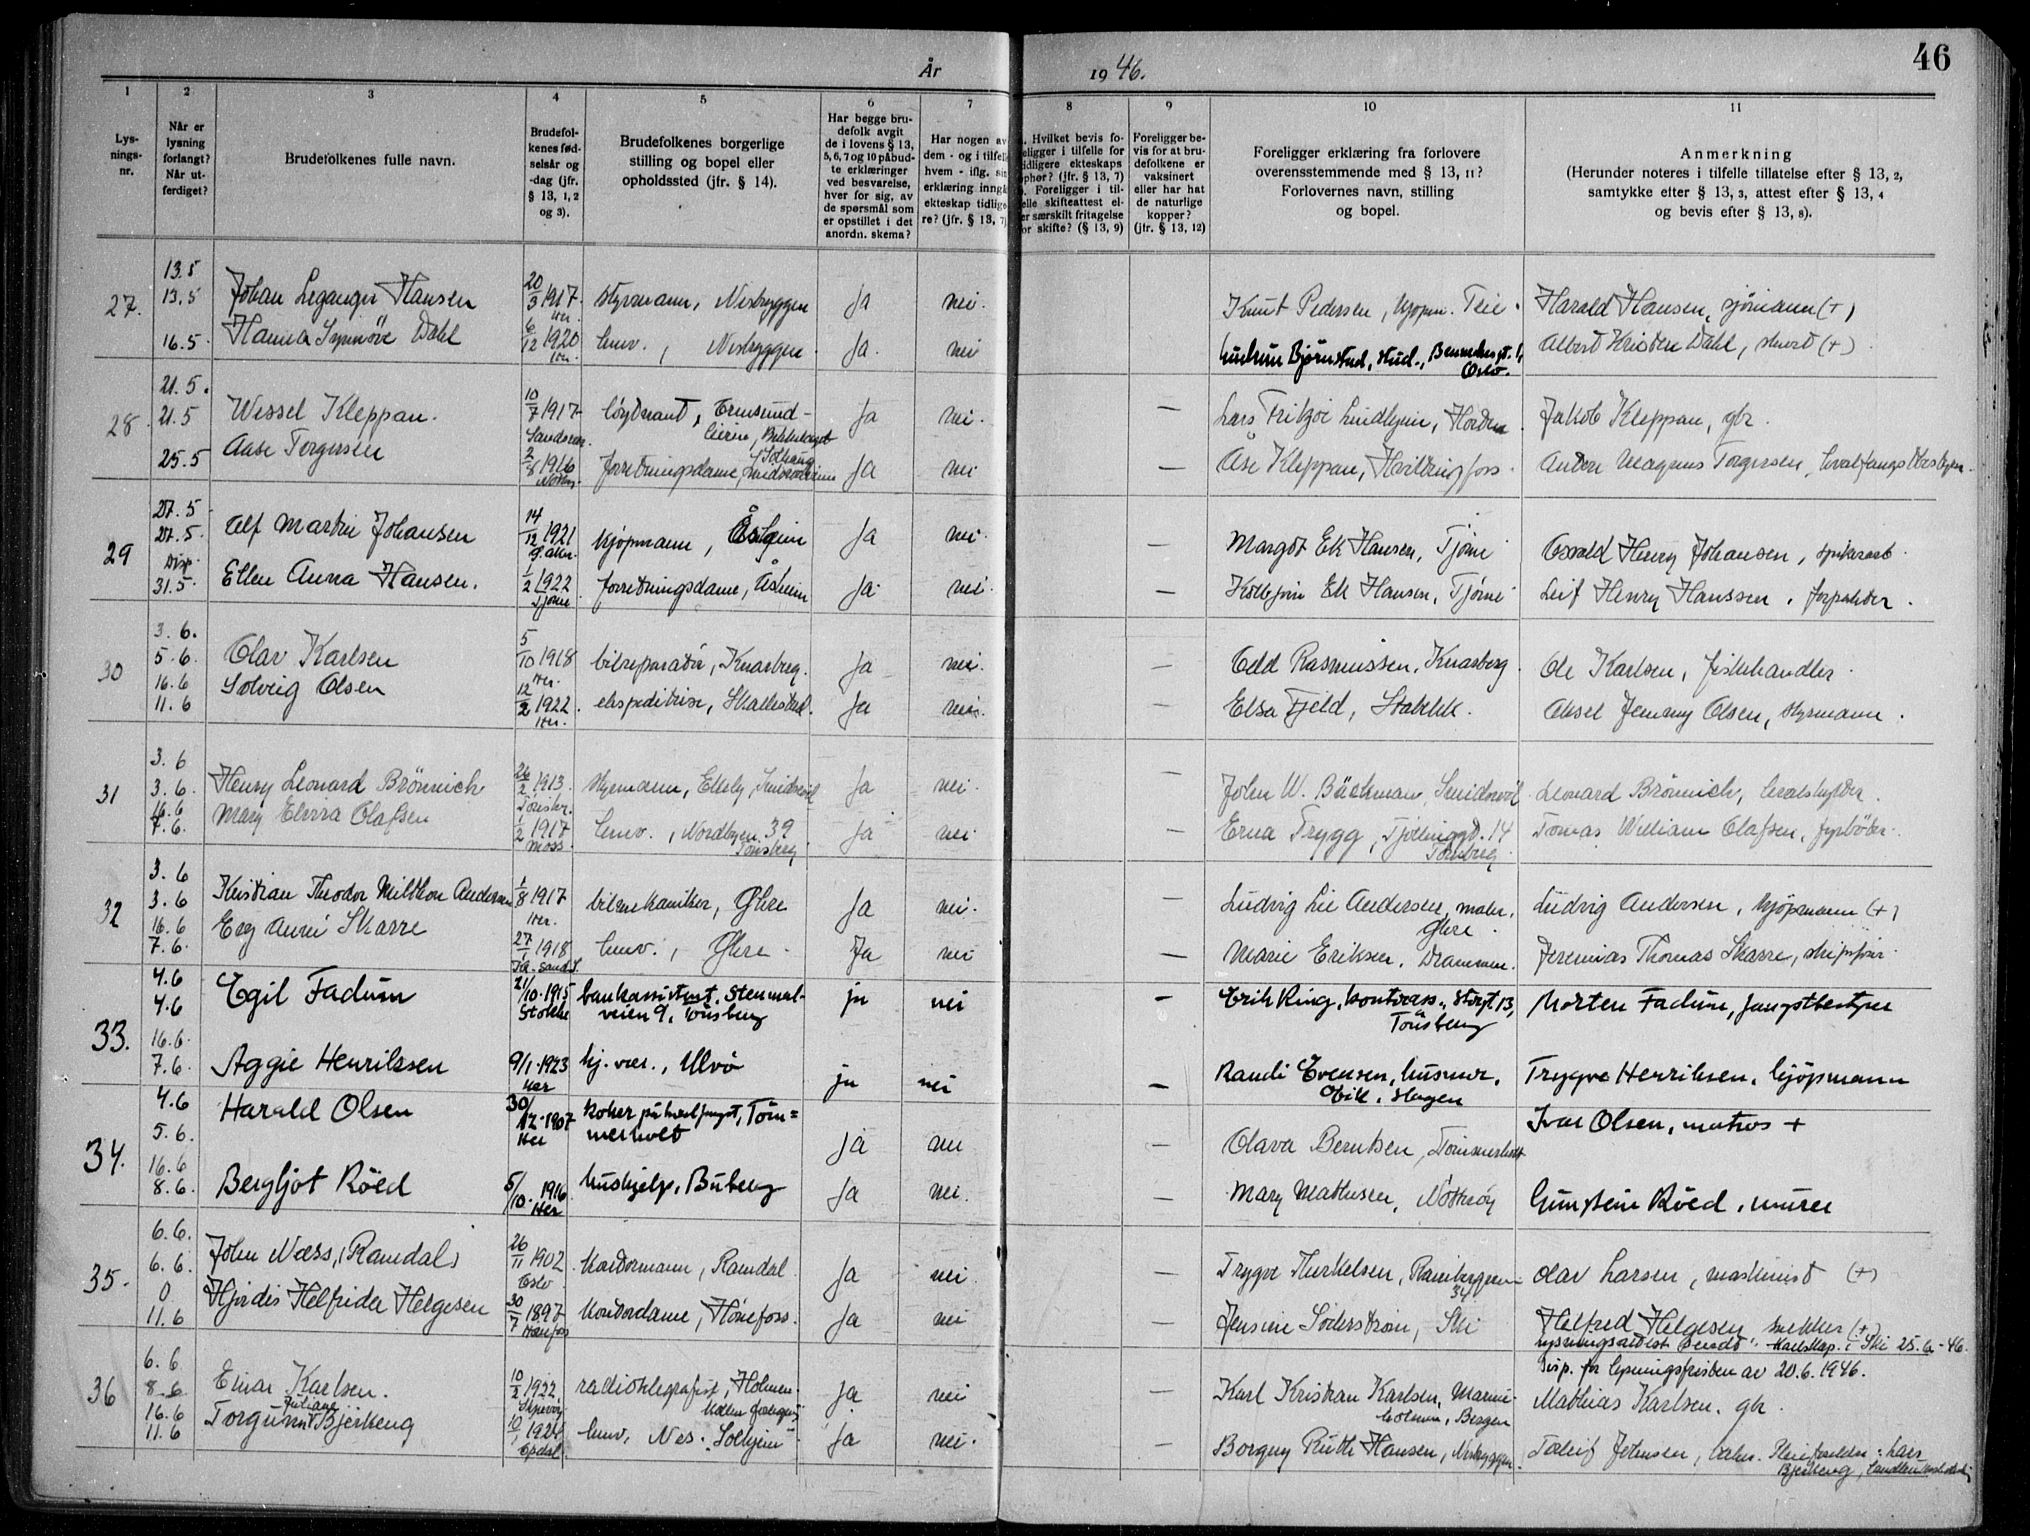 46
År 1946.
1
2
3
4
5
6
7
8
9
10
11
Lysnings-
nr.
Når er
lysning
forlangt?
Når ut-
ferdiget?
Brudefolkenes fulle navn.
Brudefol-
kenes fød-
selsår og
-dag (jfr.
§ 13, 1, 2
og 3).
Brudefolkenes borgerlige
stilling og bopel eller
opholdssted (jfr. § 14).
Har begge bru-
defolk avgit
de i lovens § 13,
5, 6, 7 og 10 påbud-
te erklæringer
ved besvarelse,
hver for sig, av
de spørsmål som
er opstillet i det
anordn. skema?
Har nogen av
dem - og i tilfelle
hvem - iflg. sin
erklæring inngå
ekteskap tidlige-
re? (jfr. § 13, 7)
. Hvilket bevis fo-
eligger i tilfelle for
idligere ekteskaps
phør? (jfr. § 13, 7)
. Foreligger i til-
elle skifteattest el-
er særskilt fritagelse
or skifte? (§ 13, 9)
Foreligger be-
vis for at bru-
defolkene er
vaksinert
eller har hat
de naturlige
kopper?
(jfr. § 13, 12)
Foreligger erklæring fra forlovere
overensstemmende med § 13, 11?
Forlovernes navn, stilling
og bopel.
Anmerkning
(Herunder noteres i tilfelle tillatelse efter § 13, 2,
samtykke efter § 13, 3, attest efter § 13, 4
og bevis efter § 13, 8).
27. 13.5 13.5 Johan Leganger Hansen 20/3 1917 Her. styrmann, Nesbryggen Ja nei. Knut Pedersen, kjøpm. Teie. Harald Hansen, sjømann (+)
16.5 Hanna Synnøve Dahl 6/12 1920 Her. hmv., Nesbryggen Ja. nei Gudrun Bjørnstad, stud., Oslo. Albert Kristen Dahl, stuert (+)
28 21.5. 21.5 Wessel Kleppan. 10/7 1917 løytnant, Ja nei. — Lars Fritzøe Lindhjem, Jakob Kleppan, gbr.
25.5 Aase Torgersen 2/8 1916 forretningsdame, Ja nei — Åse Kleppan, Hvittingfoss. Anders Magnus Torgersen,
29 27.5 27.5 Alf Martin Johansen 14/12 1921 kjøpmann, Åsheim Ja nei. — Margot Ek Hansen, Tjøme Osvald Henry Johansen,
Disp 31.5 Ellen Anna Hansen. 1/2 1922 Tjøme forretningsdame, Åsheim Ja. nei. — Ek Hansen, Tjøme Leif Henry Hanssen, forpakter.
30 3.6. 5.6. Olav Karlsen 5/10 1918 Her. bilreparatør, Knarberg. Ja nei. — Odd Rasmussen, Knarberg. Ole Karlsen, fiskehandler.
16.6 11.6 Solveig Olsen 12/2 1922. Her. ekspeditrise, Skallestad. Ja nei. — Elsa Fjeld, Stabekk. Aksel Jenny Olsen, styrmann.
31 3.6 3.6. Henry Leonard Brönnich 26/2 1913. Tønsbr. styrmann, Elleby, Smidsrød Ja nei. — John W. Bäckman, Smidsrød Leonard Brönnich, hvalskytter.
16.6 7.6. Mary Elvira Olafsen 1/2 1917 Moss hmv., Nordbyen 39 Tønsberg Ja nei. — Erna Trygg, Tjøllinggt. 14 Tønsberg. Tomas William Olafsen, fyrbøter.
32 3.6 3.6 Kristian Theodor Milthon Andersen 1/8 1917 Her. bilmekaniker, Øhre Ja nei. — Ludvig Lie Andersen, maler, Øhre. Ludvig Andersen, kjøpmann (+)
16.6 7.6. Evy Anni Skarre 27/1 1918 hmv., Øhre. Ja nei — Marie Eriksen, Drammen. Jeremias Thomas Skarre, skipsfører.
33. 4.6 4.6 Egil Fadum 21/10-1915 Stokke bankassistent, Stenmal-
veien 9, Tönsberg ja nei — Erik Ring, kontorass., Storgt. 13, Tönsberg Morten Fadum, fangstbestyrer
16.6. 7.6. Aggie Henriksen 9/1-1923 Her hj. vær., Ulvö ja nei — Randi Evensen, husmor, Eik, Slagen Trygve Henriksen, kjöpmann
34. 4.6 5.6. Harald Olsen 30/12-1907 Her koker på hvalfangst, Töm=
merholt Ja nei — Olava Berntsen, Tömmerholt Ivar Olsen, matros +
16.6 8.6. Bergljot Röed 5/10-1916. Her hushjelp, Buberg Ja nei. — Mary Mathisen, Nötterøy Gunstein Röed, murer
35. 6.6. 6.6. John Næss, (Ramdal) 26/11 1902 Oslo kontormann, Ramdal Ja nei. — Trygve Thorkelsen, 34 Olav Larsen, maskinist (+)
0 11.6 Hjørdis Helfrida Helgesen 30/7 1897 Hønefoss kontordame, Hønefoss. Ja nei — Jensine Söderstrøm, Ski Halfred Helgesen snekker (+)
lysningsattest sendt i Ski 25.6-46.
Disp. for lysningsfristen av 20.6.1946.
36 6.6 8.6 Einar Karlsen. 10/2 1922 radiotelegrafist, Holmen. ja nei — Karl Kristian Karlsen, Bergen Mathias Karlsen, gbr.
16.6 11.6 Torgunn Juliane Bjerkeng 10/1 1924 hmv, Nes. Solhjem Ja nei. — Borgny Ruth Hansen, Nesbryggen. Toleif Johansen,